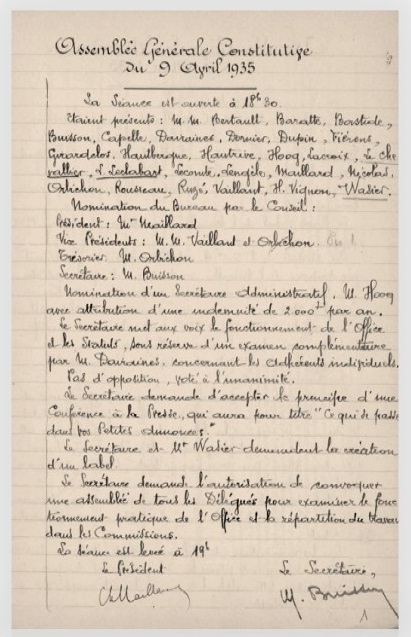 Assemblée Générale Constitutive
du 9 Avril 1935
La Séance est ouverte à 18h 30.
Etaient présents : M.M. Bertault, Baratte, Bastide,
Buisson, Capelle, Davaines, Dernier, Dupin, Fiérens,
Girardclos, Haultecque, Hautrive, Hoog, Lacroix, Le Che
vallier, Lecomte, Lengelé, Maillard, Nicolas,
Orbichon, Rousseau, Rugé, Vaillant, H. Vignon, Wasier.
Nomination du Bureau par le Conseil :
Président : Mr Maillard
Vice Présidents : M.M. Vaillant et Orbichon.
Trésorier M. Orbichon
Secrétaire : M. Buisson
Nomination d'un Secrétaire Administratif, M. Hoog
avec attribution d'une indemnité de 2.000f par an.
Le Secrétaire met aux voix le fonctionnement de l'Office
et les Statuts, sous réserve d'un examen complémentaire
par M. Davaines, concernant les adhérents individuels.
Pas d'opposition, voté à l'unanimité.
Le Secrétaire demande d'accepter le principe d'une
Conférence à la Presse, qui aura pour titre "Ce qui se passe
dans vos Petites Annonces."
Le Secrétaire et Mr Wasier demandent la création
d'un label
Le Secrétaire demande l'autorisation de convoquer
une assemblée de tous les Délégués pour examiner le fonc
tionnement pratique de l'Office et la répartition du travail
dans les Commissions.
La séance est levée à 19h
Le Président
Le Secrétaire,
Ch Maillard
M. Buisson
1